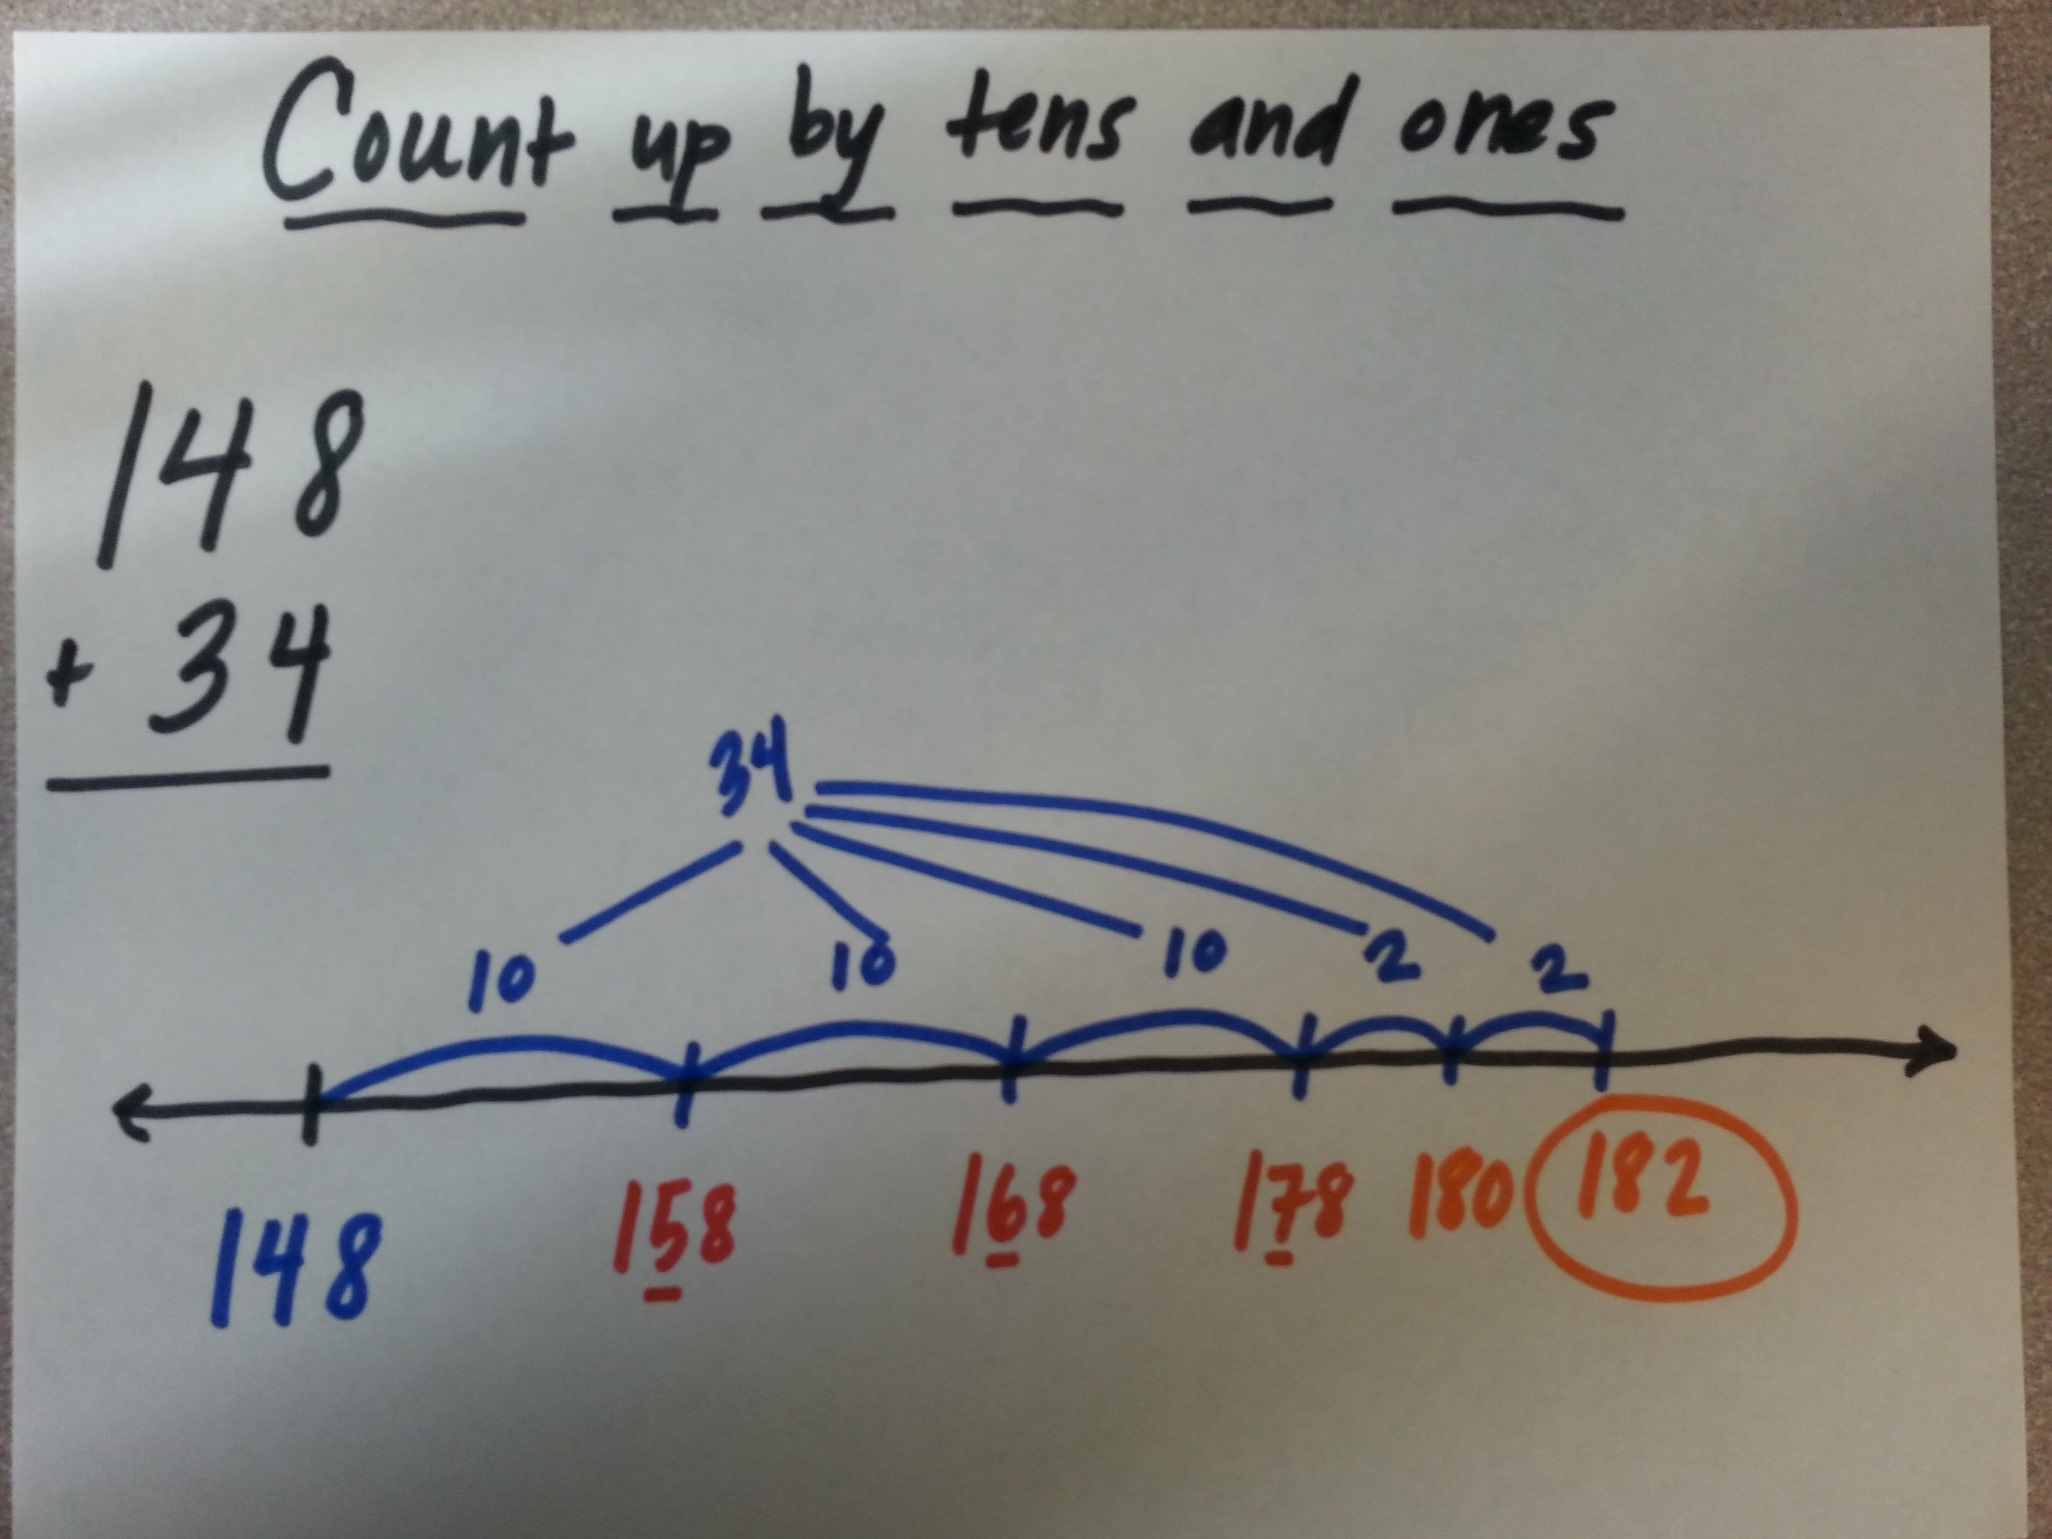 Count up by tens and ones
148
+ 34
34
10 10 10 2 2
148 158 168 178 180 182